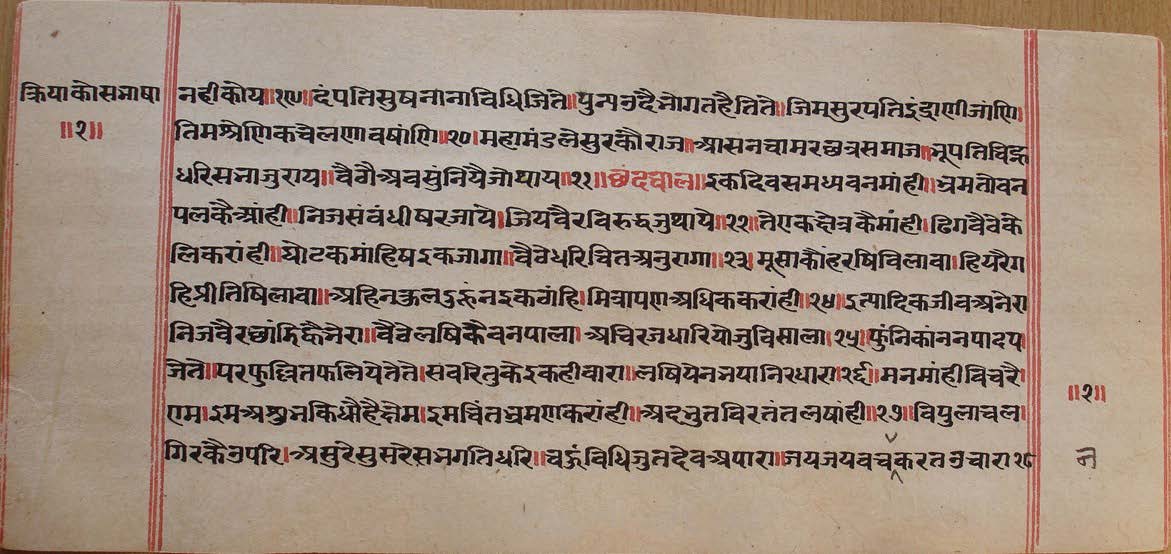 क्रियाकोसभाषा
॥२॥
नहीकोय॥१९॥दंपतिसुषनानाविधिजिते॥पुन्यउदैभोगतहैतिते॥जिमसुरपतिइंद्राणीजांणि।
तिमश्रेणिकचेलणावषांणि॥२०॥महामंडलेसुरकौराज॥आसनचामरछत्रसमाज॥भूपतिचिह्न
धरिसभाजुराय॥वैवौअबसुंनियैजोथाय॥२१॥छंदचाल॥इकदिवसमध्यवनमांही॥भ्रमतोवन
पलकैआंही॥निजसंबंधीषरजाये।जियवैरविरुद्धजुथाये॥२२॥तेएकक्षेत्रकैमांही।ढिगवैवेके
लिकरांही॥घोटकमांहिषइकजागा॥वैवेधरिचितअनुरागा॥२३॥मूसाकौंहरषिविलावा।हियरैग
हिप्रीतिषिलावा॥अहिनकुलदुहूंनइकवांहि।मित्रापणअधिककरांही॥२४॥इत्यादिकजीवअनेरा
निजवैरछांडिकैनेरा॥वैवेलषिकैवनपाला।अचिरजधारियोजुविसाला॥२५॥फुंनिकांननपादप
जेते॥परफुल्लितफलियेतेते॥सवरितुकेइकहीवारा॥लषियेनजपानिरधारा॥२६॥मनमांहीविचरै
एम॥इमअशुभकिधौंहैक्षेम॥इमचिंतभ्रमणकरांही॥अदभुतविरतंतलषांही॥२७॥विपुलाचल
गिरकैउपरि।असुरेसुसुरेसभगतिधरि॥चहुंविधिजुतदेवअपारा॥जयजयवचकरतउचारा२८
॥२॥
न